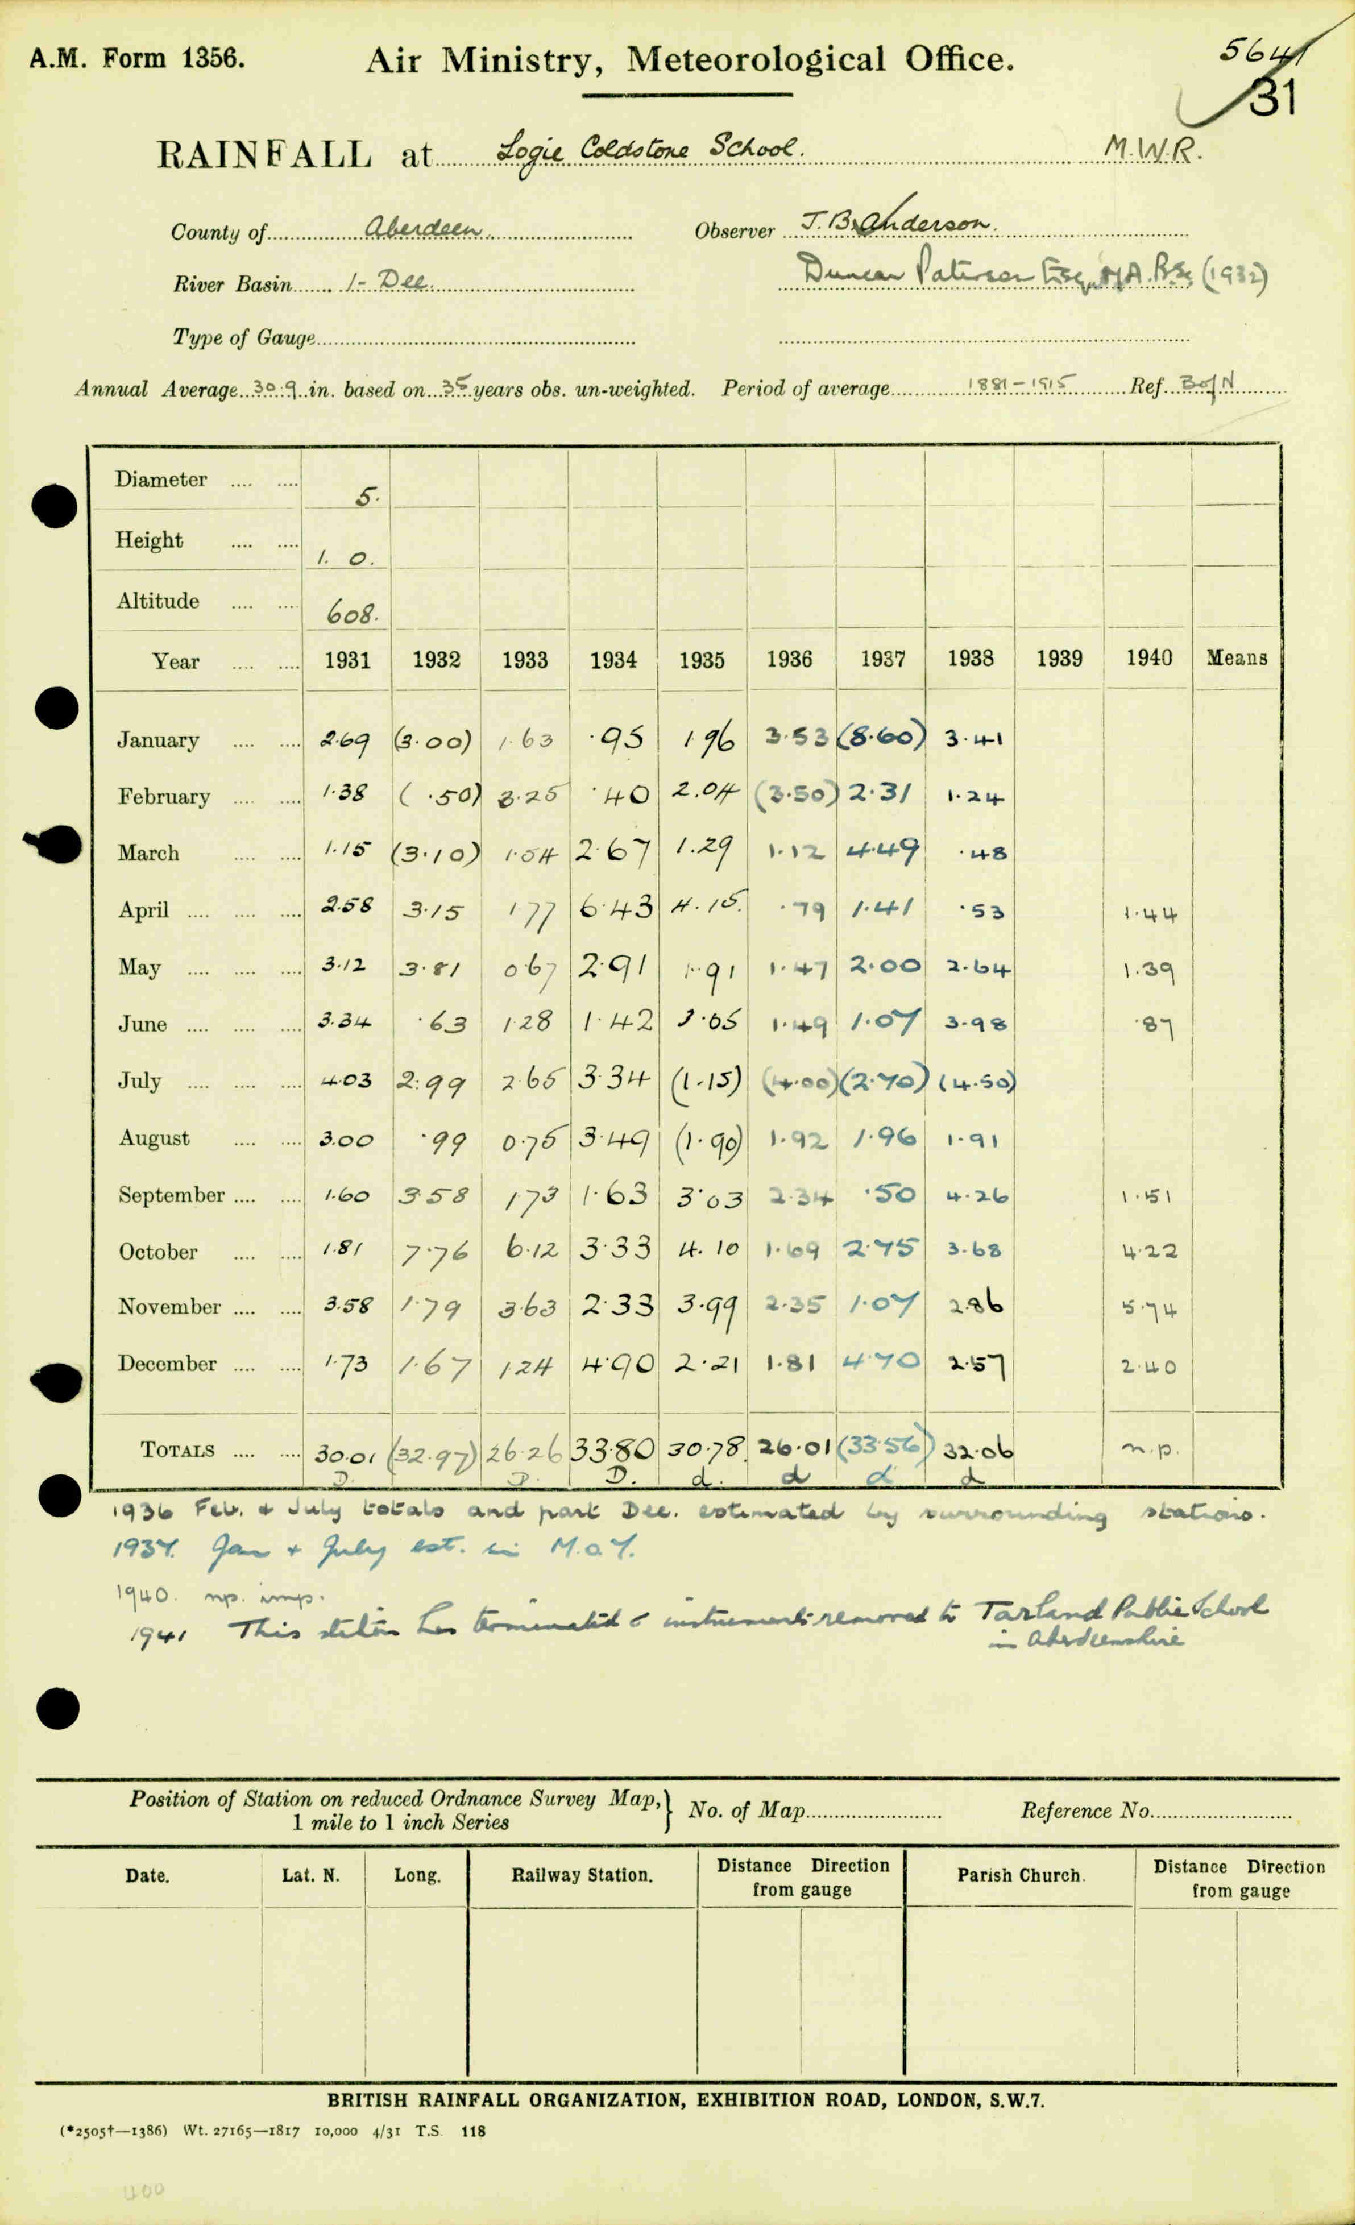 A.M. Form 1356. Air Ministry, Meteorological Office. 5641
31
RAINFALL at Logie Coldstone School. M.W.R.
County of Aberdeen. Observer J. B. Anderson.
River Basin 1- Dee. Duncan Paterson Esq. M.A. B.Sc (1932)
Type of Gauge
Annual Average 30.9 in. based on 35 years obs. un-weighted. Period of average 1881-1915 Ref. B of N
Diameter 5.
Height 1. 0.
Altitude 608.
Year 1931 1932 1933 1934 1935 1936 1937 1938 1939 1940 Means
January 2.69 (3.00) 1.63 .95 1.96 3.53 (8.60) 3.41
February 1.38 (.50) 3.25 .40 2.04 (3.50) 2.31 1.24
March 1.15 (3.10) 1.54 2.67 1.29 1.12 4.49 .48
April 2.58 3.15 1.77 6.43 4.15. .79 1.41 .53 1.44
May 3.12 3.81 0.67 2.91 1.91 1.47 2.00 2.64 1.39
June 3.34 .63 1.28 1.42 3.05 1.49 1.07 3.98 .87
July 4.03 2.99 2.65 3.34 (1.15) (4.00) (2.70) (4.50)
August 3.00 .99 0.75 3.49 (1.90) 1.92 1.96 1.91
September 1.60 3.58 1.73 1.63 3.03 2.34 .50 4.26 1.51
October 1.81 7.76 6.12 3.33 4.10 1.69 2.75 3.68 4.22
November 3.58 1.79 3.63 2.33 3.99 2.35 1.07 2.86 5.74
December 1.73 1.67 1.24 4.90 2.21 1.81 4.70 2.57 2.40
TOTALS 30.01 (32.97) 26.26 33.80 30.78 26.01 (33.56) 32.06 n.p.
D. D. D. d. d d d
1936 Feb. & July totals and part Dec. estimated by surrounding stations.
1937. Jan + July est. in M.O.7.
1940. np. imp.
1941 This station has terminated & instruments removed to Tarland Public School
in Aberdeenshire
Position of Station on reduced Ordnance Survey Map, 1 mile to 1 inch Series } No. of Map Reference No.
Date. Lat. N. Long. Railway Station. Distance Direction from gauge Parish Church. Distance Direction from gauge
BRITISH RAINFALL ORGANIZATION, EXHIBITION ROAD, LONDON, S.W.7.
(*2505†—1386) Wt. 27165—1817 10,000 4/31 T.S. 118
400